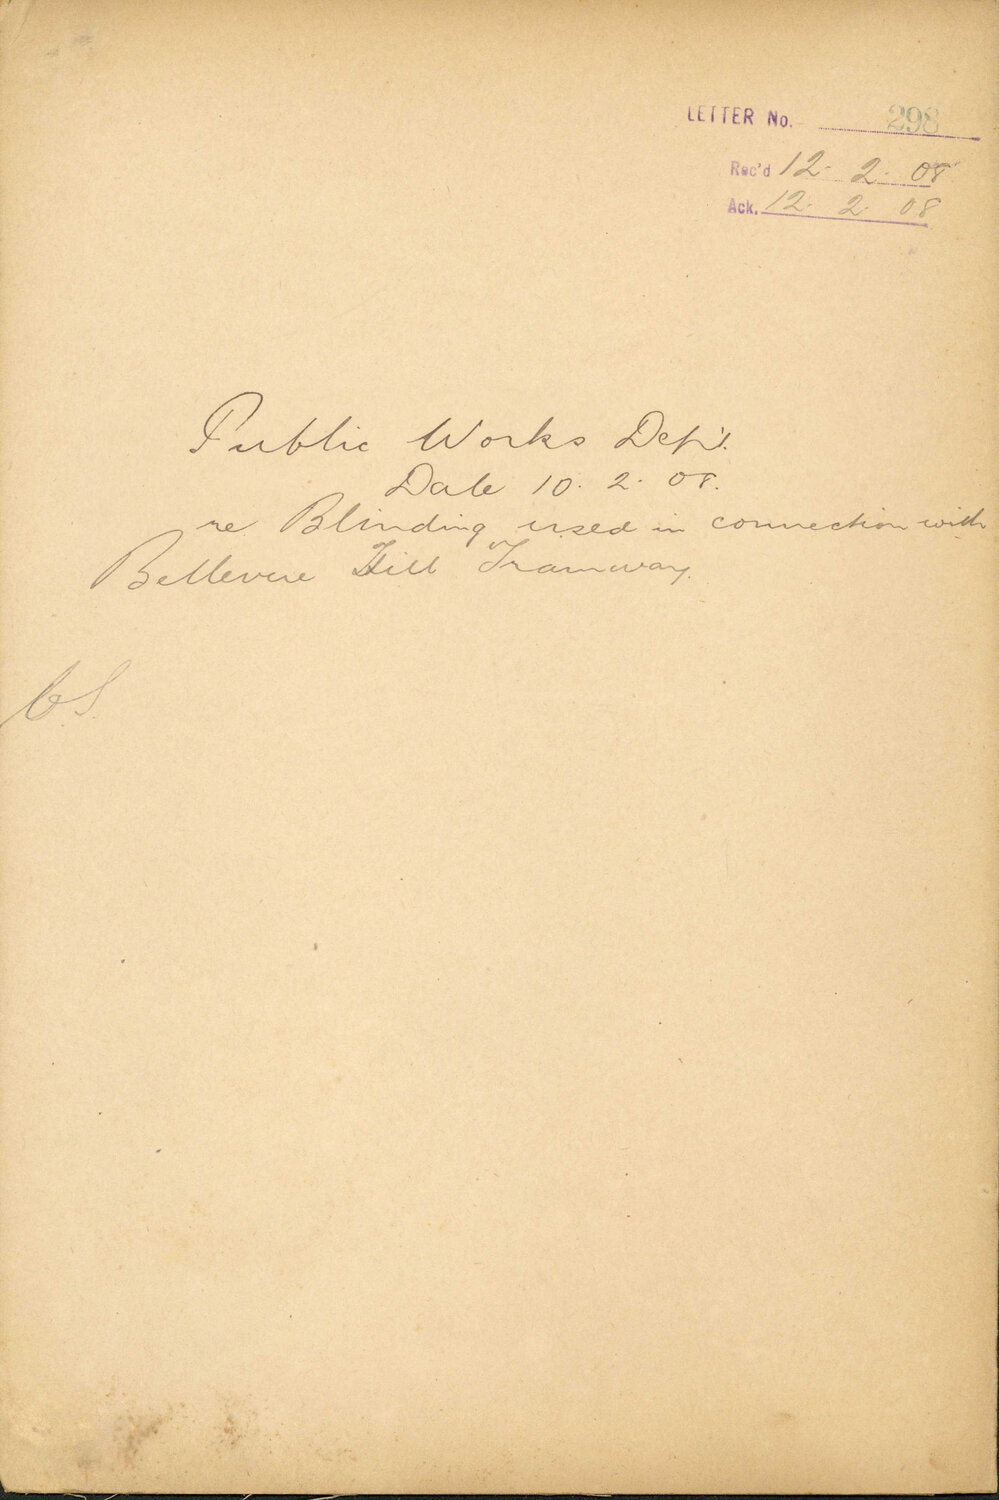 LETTER No. 298
Rec'd 12. 2. 08
Ack. 12. 2. 08
Public Works Dep't.
Date 10. 2. 08.
re Blinding used in connection with
Bellevue Hill Tramway.